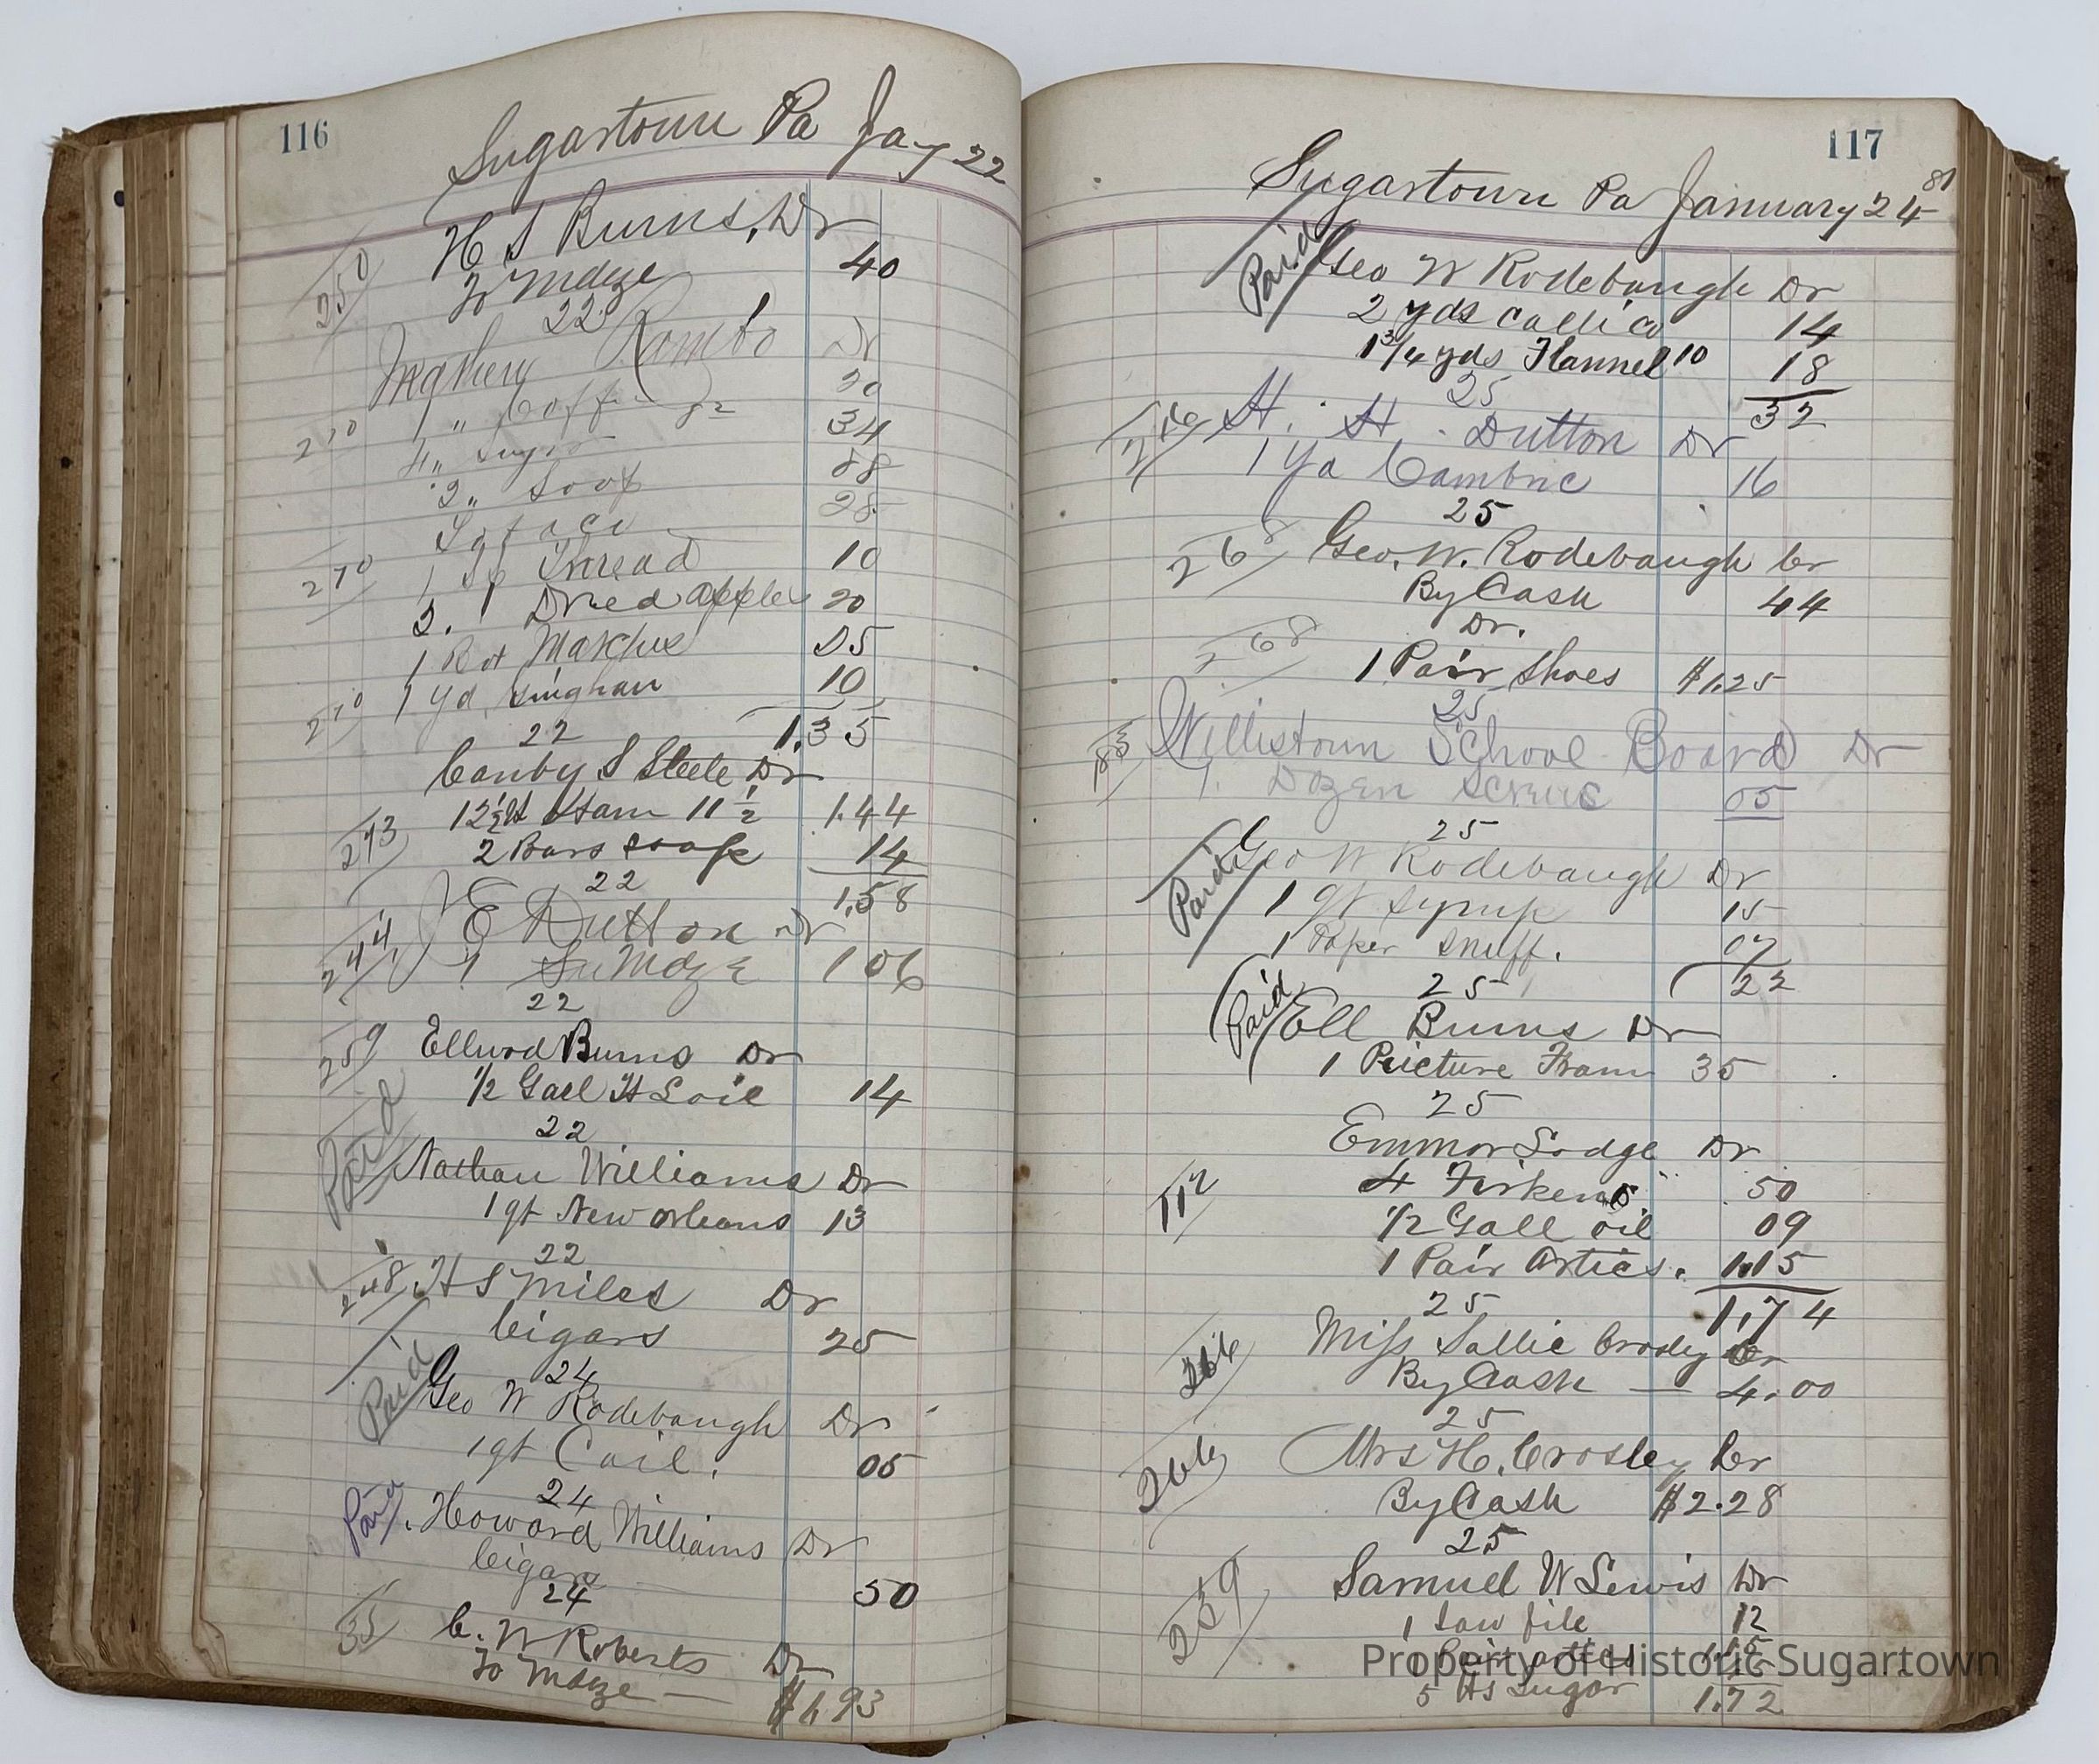 116
Sugartown Pa Jay 22
H S Burns, Dr
250 To Mdze 40
22
Rambo Dr
1 " Coffee 20
210 4 " Sugar 34
2 " Soap
28
1 Sp Thread 10
270 2. Dried apples 20
1 Bx Matches 05
1 yd Gingham 10
270
22 1.35
Canby S Steele Dr
12½ lb Ham 11½ 1.44
273 2 Bars soap 14
22 1.58
J E Dutton Dr
244 1 Su Mdze 106
22
259 Ellwod Burns Dr
½ Gall H L oil 14
22
Paid Nathan Williams Dr
1 qt New orleans 13
22
248 H S Miles Dr
Cigars 25
24
Paid Geo W Rodebaugh Dr
1 qt C oil. 05
24
Paid. Howard Williams Dr
Cigars 50
24
35 C. W Roberts Dr
To Mdze — $1.93
117
Sugartown Pa January 24 81
Paid Geo W Rodebaugh Dr
2 yds callico 14
1 3/4 yds Flannel 10 18
25 32
216 H. H. Dutton Dr
1 Yd Cambric 16
25
268 Geo. W. Rodebaugh Cr
By Cash 44
Dr.
268 1 Pair Shoes $1.25
25
183 Willistown School Board Dr
1. Dozen Screws 05
25
Paid Geo W Rodebaugh Dr
1 qt Syrup 15
1 Paper Snuff. 07
25 22
Paid Ell Burns Dr
1 Picture Fram 35
25
Emmor Lodge Dr
112 4 Firkens 50
½ Gall oil 09
1 Pair Artics. 1.15
25 1.74
266 Miss Sallie Crosley Cr
By Cash — 4.00
25
266 Mrs H. Crosley Cr
By Cash $2.28
25
259 Samuel W Lewis Dr
1 Saw file 12
1 Pair artics 1.15
5 lbs Sugar 1.72
Property of Historic Sugartown